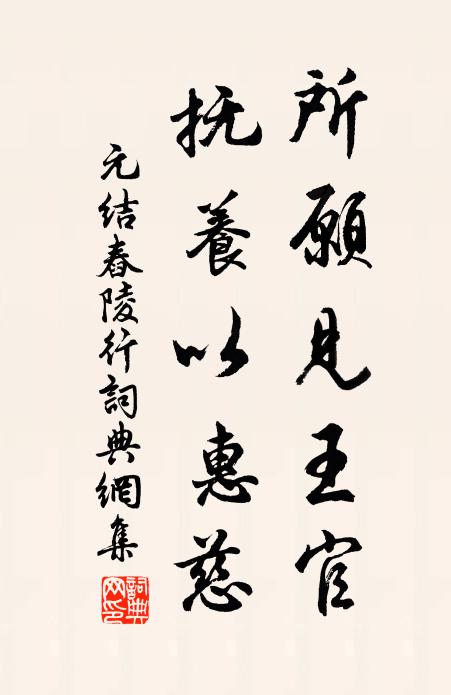 所願見王官
抚養以惠慈
元结舂陵行詞典網集
詞典网印